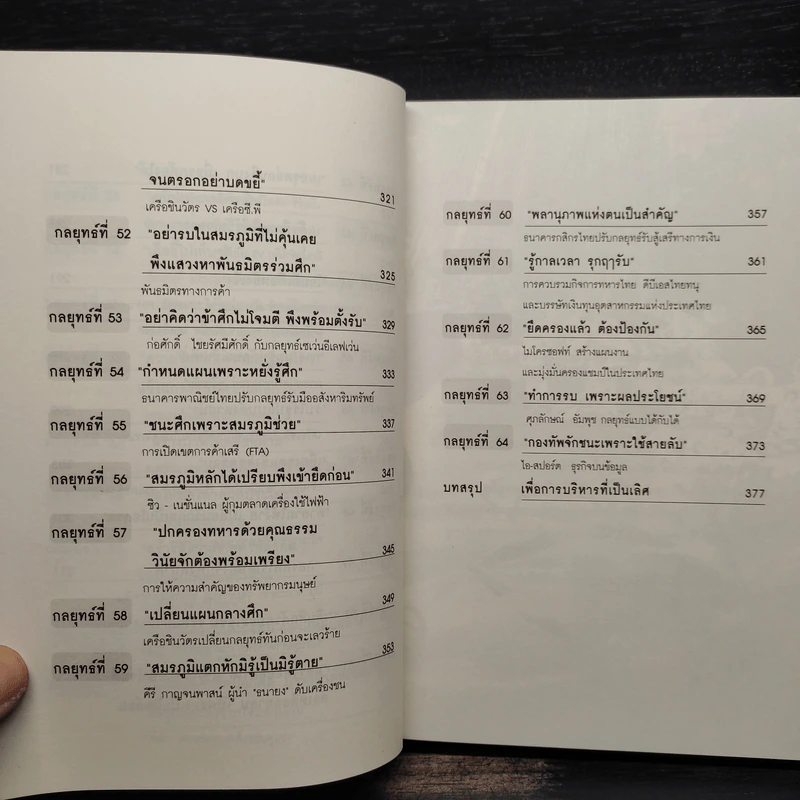 จนตรอกอย่าบดขยี้" 321
เครือชินวัตร VS เครือซี.พี
กลยุทธ์ที่ 52 "อย่ารบในสมรภูมิที่ไม่คุ้นเคย
พึงแสวงหาพันธมิตรร่วมศึก" 325
พันธมิตรทางการค้า
กลยุทธ์ที่ 53 "อย่าคิดว่าข้าศึกไม่โจมตี พึงพร้อมตั้งรับ" 329
ก่อศักดิ์ ไชยรัศมีศักดิ์ กับกลยุทธ์เซเว่นอีเลฟเว่น
กลยุทธ์ที่ 54 "กำหนดแผนเพราะหยั่งรู้ศึก" 333
ธนาคารพาณิชย์ไทยปรับกลยุทธ์รับมืออสังหาริมทรัพย์
กลยุทธ์ที่ 55 "ชนะศึกเพราะสมรภูมิช่วย" 337
การเปิดเขตการค้าเสรี (FTA)
กลยุทธ์ที่ 56 "สมรภูมิหลักได้เปรียบพึงเข้ายึดก่อน" 341
ซิว - เนชั่นแนล ผู้กุมตลาดเครื่องใช้ไฟฟ้า
กลยุทธ์ที่ 57 "ปกครองทหารด้วยคุณธรรม
วินัยจักต้องพร้อมเพรียง" 345
การให้ความสำคัญของทรัพยากรมนุษย์
กลยุทธ์ที่ 58 "เปลี่ยนแผนกลางศึก" 349
เครือชินวัตรเปลี่ยนกลยุทธ์ทันก่อนจะเลวร้าย
กลยุทธ์ที่ 59 "สมรภูมิแตกหักมิรู้เป็นมิรู้ตาย" 353
คีรี กาญจนพาสน์ ผู้นำ "ธนายง" ดับเครื่องชน
กลยุทธ์ที่ 60 "พลานุภาพแห่งตนเป็นสำคัญ" 357
ธนาคารกสิกรไทยปรับกลยุทธ์รับสู้เสรีทางการเงิน
กลยุทธ์ที่ 61 "รู้กาลเวลา รุกฤๅรับ" 361
การควบรวมกิจการทหารไทย ดีบีเอสไทยทนุ
และบรรษัทเงินทุนอุตสาหกรรมแห่งประเทศไทย
กลยุทธ์ที่ 62 "ยึดครองแล้ว ต้องป้องกัน" 365
ไมโครซอฟท์ สร้างแผนงาน
และมุ่งมั่นครองแชมป์ในประเทศไทย
กลยุทธ์ที่ 63 "ทำการรบ เพราะผลประโยชน์" 369
ศุภลักษณ์ อัมพุช กลยุทธ์แบบได้กับได้
กลยุทธ์ที่ 64 "กองทัพจักชนะเพราะใช้สายลับ" 373
ไอ-สปอร์ต ธุรกิจบนข้อมูล
บทสรุป เพื่อการบริหารที่เป็นเลิศ 377